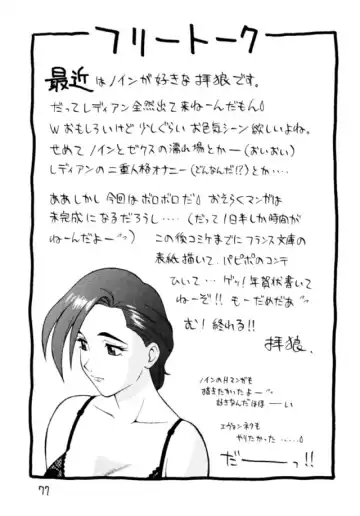 フリートーク
最近はノインが好きな拝狼です。
だってレディアン全然出て来ねーんだもん。
Wおもしろいけど少しぐらいお色気シーン欲しいよね。
せめてノインとゼクスの濡れ場とかー(おいおい)
レディアンの二重人格オナニー(どんなんだ!?)とか‥‥
ああしかし今回はボロボロだ。おえらくマンガは
未完成になるだろうし‥‥(だって1日半しか時間が
ねーんだよー"ッ) この後コミケまでにフランス文庫の
表紙描いて、パピポのコンテ
ひいて‥‥ゲッ!年賀状書いて
ねーぞ!! もーだめだあ"ッ
む!終れる!!
拝狼、
ノインのHマンガも
描きたかったよー"ッ
好きなんだほほーい
エヴァンネタも
やりたかった‥‥。
だーーっ!!
77